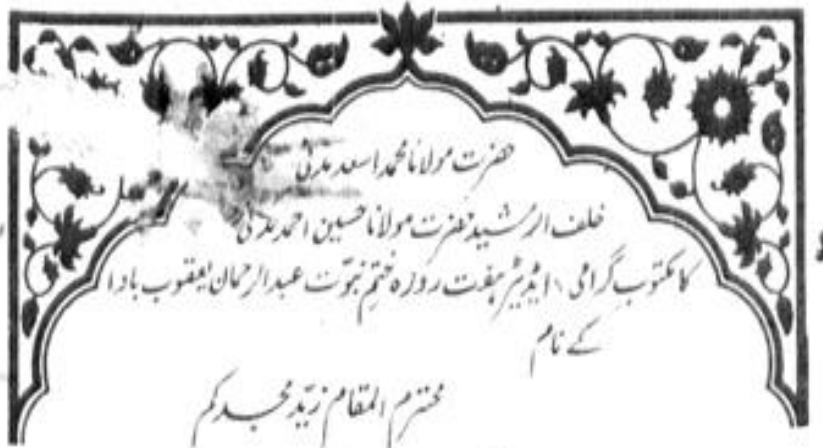 حضرت مولانا محمد اسعد مدنی
خلف الرشید حضرت مولانا حسین احمد مدنی
کا مکتوب گرامی ، ایڈیٹر ہفت روزہ ختم نبوّت عبدالرحمان یعقوب باوا
کے نام
محترم المقام زیّد مجدکم